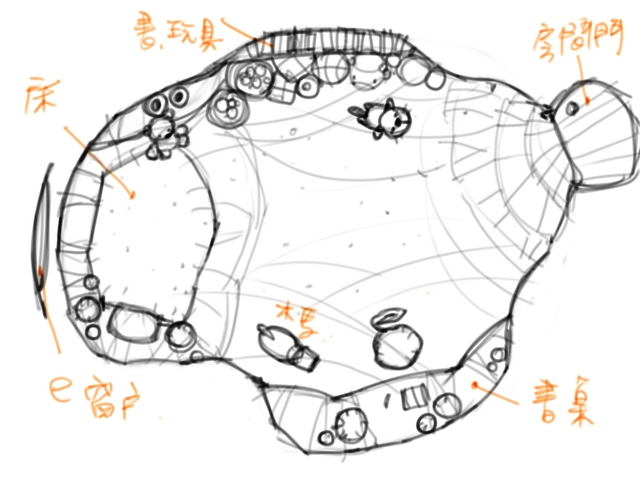 書、玩具
房間門
床
木馬
e 窗戶
書桌